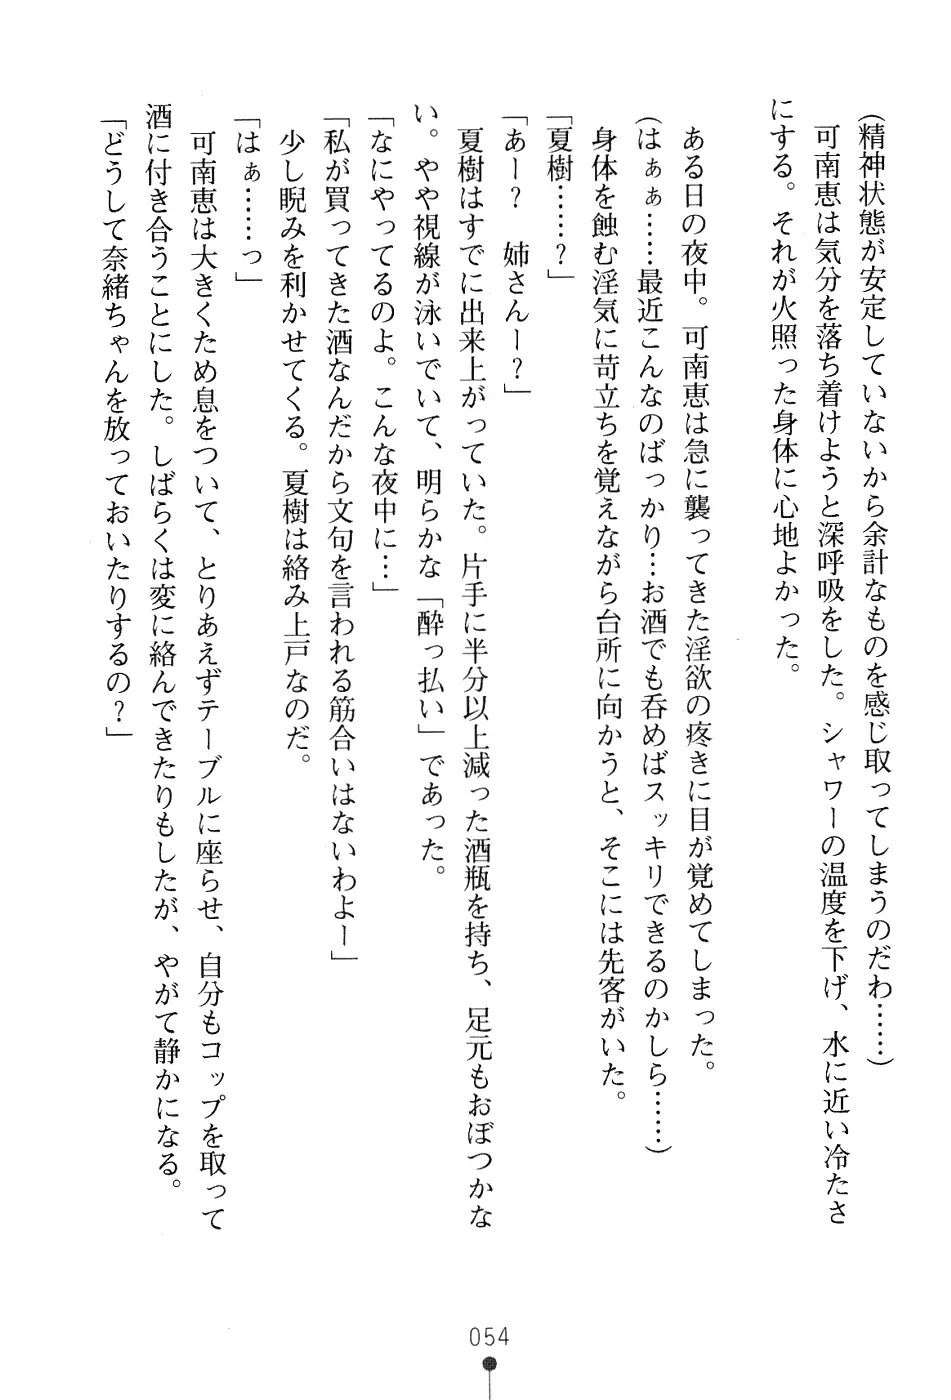 （精神状態が安定していないから余計なものを感じ取ってしまうのだわ……）
　可南恵は気分を落ち着けようと深呼吸をした。シャワーの温度を下げ、水に近い冷たさ
にする。それが火照った身体に心地よかった。
　ある日の夜中。可南恵は急に襲ってきた淫欲の疼きに目が覚めてしまった。
（はぁぁ……最近こんなのばっかり…お酒でも呑めばスッキリできるのかしら……）
　身体を蝕む淫気に苛立ちを覚えながら台所に向かうと、そこには先客がいた。
「夏樹……？」
「あー？　姉さんー？」
　夏樹はすでに出来上がっていた。片手に半分以上減った酒瓶を持ち、足元もおぼつかな
い。やや視線が泳いでいて、明らかな「酔っ払い」であった。
「なにやってるのよ。こんな夜中に…」
「私が買ってきた酒なんだから文句を言われる筋合いはないわよー」
　少し睨みを利かせてくる。夏樹は絡み上戸なのだ。
「はぁ……っ」
　可南恵は大きくため息をついて、とりあえずテーブルに座らせ、自分もコップを取って
酒に付き合うことにした。しばらくは変に絡んできたりもしたが、やがて静かになる。
「どうして奈緒ちゃんを放っておいたりするの？」
054